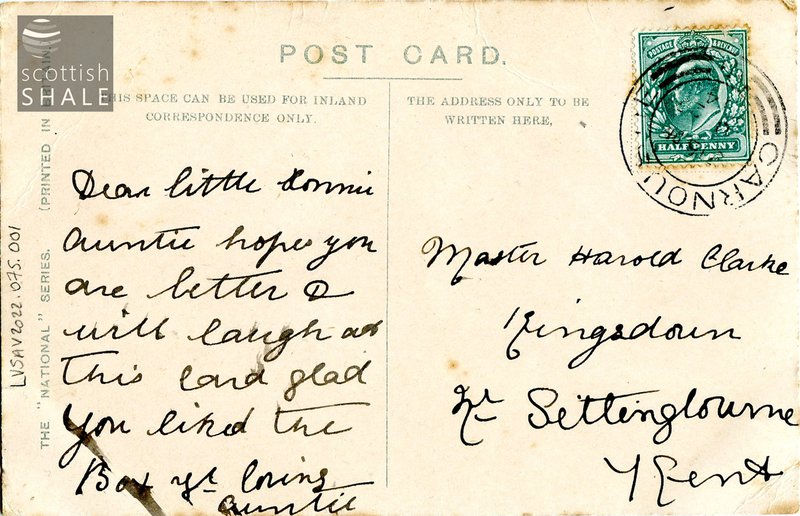 scottish
SHALE
POST CARD.
THIS SPACE CAN BE USED FOR INLAND
CORRESPONDENCE ONLY.
THE ADDRESS ONLY TO BE
WRITTEN HERE,
POSTAGE & REVENUE
HALFPENNY
CARNOU
Dear little
Auntie hopes you
are better &
will laugh at
this card glad
you liked the
Box yr loving
auntie
Master Harold Clarke
Kingsdown
Nr Settingbourne
Kent
THE "NATIONAL" SERIES. (PRINTED IN BRITAIN.)
LVSAV2022.075.001